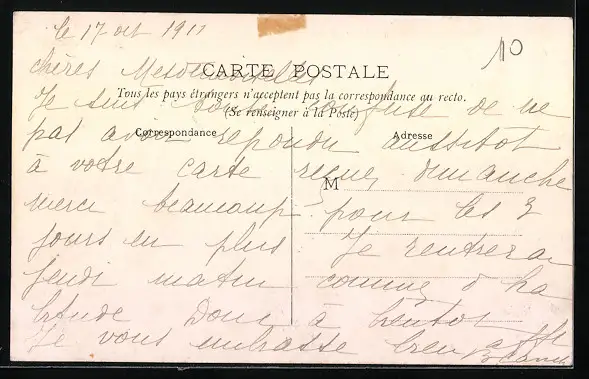 le 17 oct 1911
10
chères Mesdemoiselles
CARTE POSTALE
Tous les pays étrangers n'acceptent pas la correspondance au recto.
(Se renseigner à la Poste)
Je suis toute confuse de ne
Correspondance
Adresse
pas avoir repondu aussitot
à votre carte reçue dimanche
M
merci beaucoup pour les 3
jours en plus Je rentrerai
jeudi matin comme d ha
bitude Donc à bientot
Je vous embrasse bien